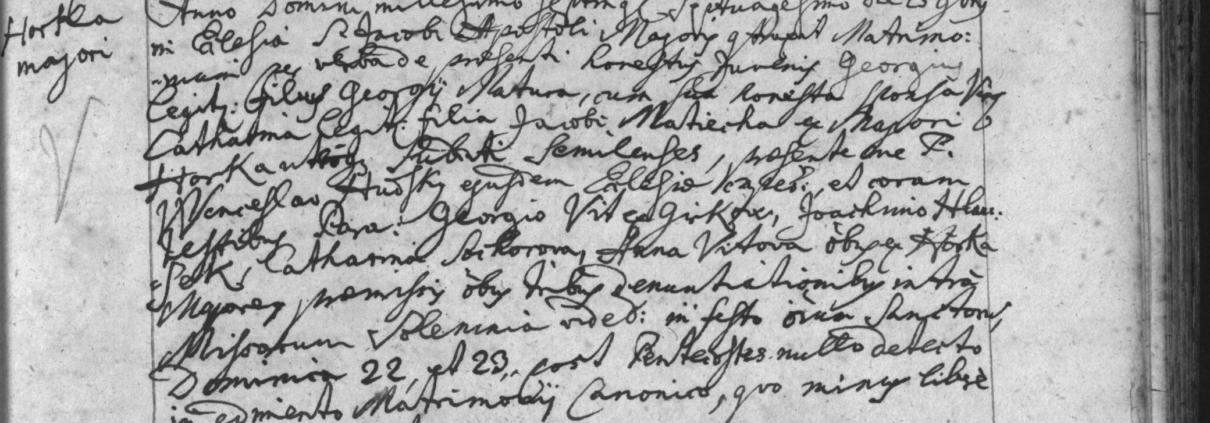 Horka
majori
Anno Domini millesimo septing: Septuagesimo die 25 9bris
in Eclesia S. Jacobi Apostoli Majoris Matrimo:
nium per verba de presenti honestus Juvenis Georgius
legit: filius Georgij Matura, cum sua honesta sponsa Virg
Catharina legit: filia Jacobi Matiecha ex Majori
Horka Subditi Semilenses, presente me P.
Wenceslao Hudsky ejusdem Eclesiæ et coram
testibus Para: Georgio Vit ex Girkow, Joachimo Hlau:
Catharina Sitkorova, Anna Vitova obus ex Horka
Majorey premissis obus tribus denuntiationibus intra
Missarum Solemnia vided: in festo oium Sanctorum,
Dominica 22, et 23, post Pentecostes nullo detecto
impedimento Matrimonij Canonico, quo minus libere